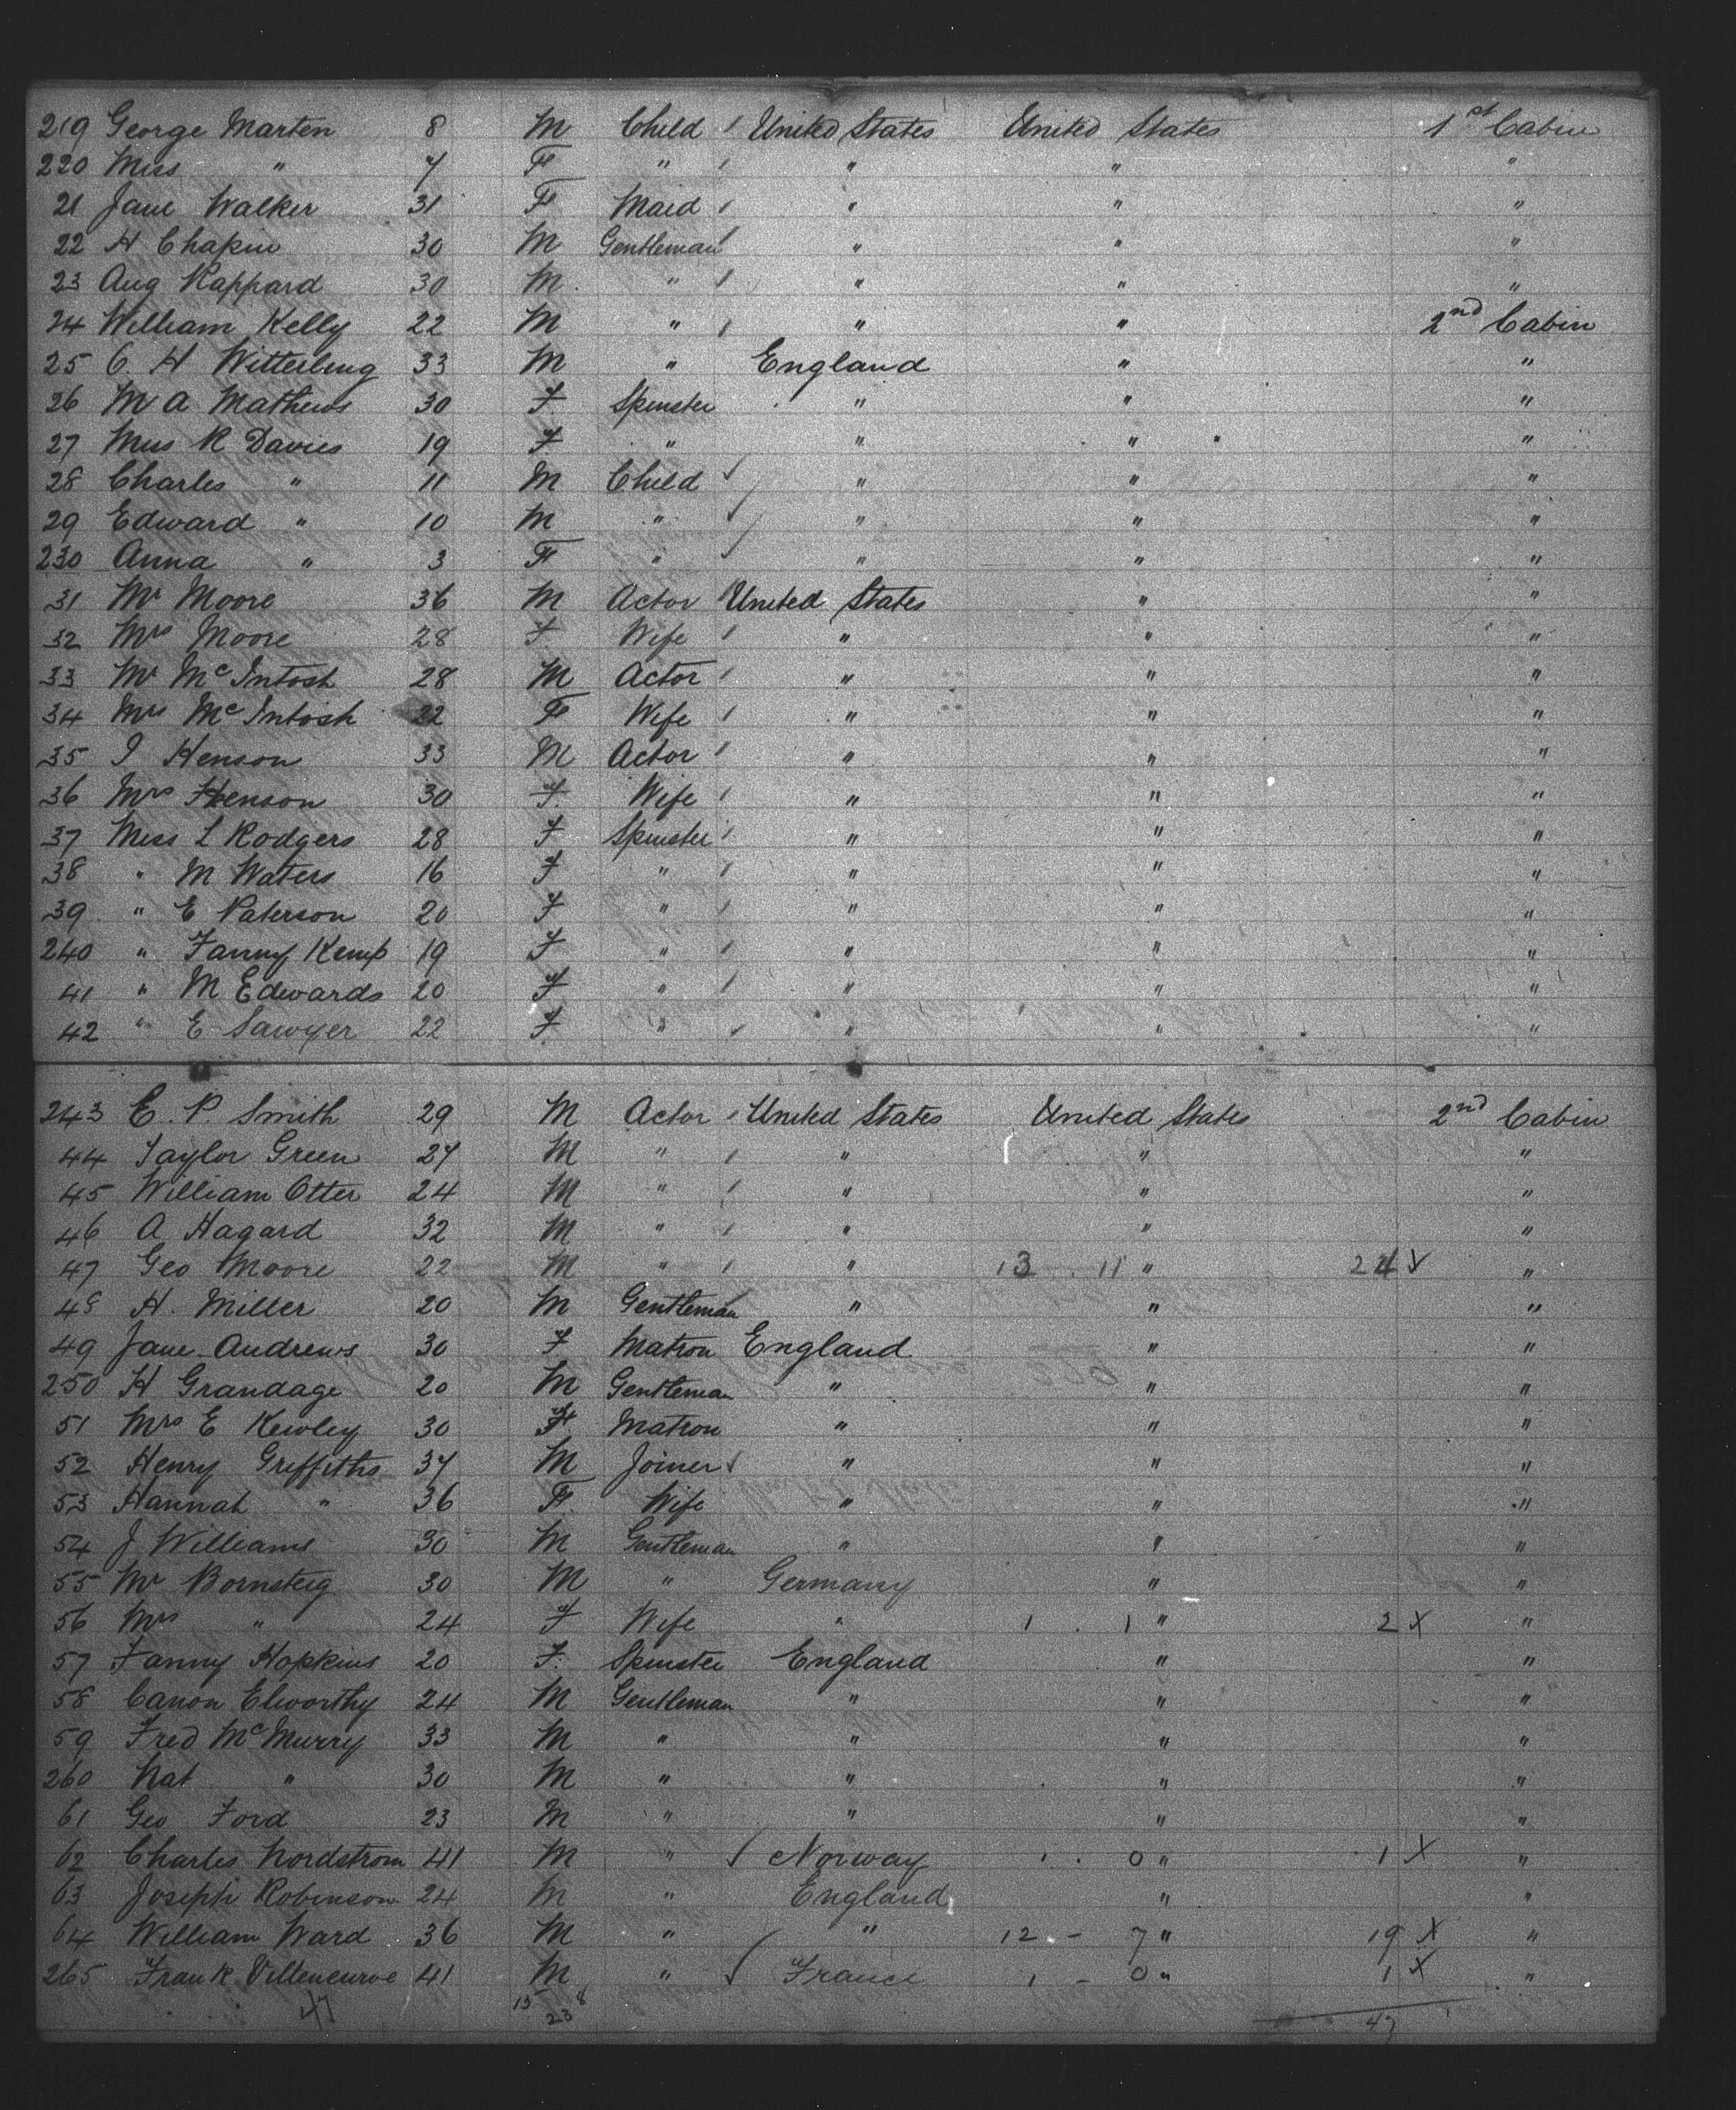 219 George Marten 8 M Child / United States United States 1st Cabin
220 Miss " 7 F " / " " "
21 Jane Walker 31 F Maid / " " "
22 H Chapin 30 M Gentleman / " " "
23 Aug Rappard 30 M " / " " "
24 William Kelly 22 M " / " " 2nd Cabin
25 C. H Witterling 33 M " England " "
26 M A Mathews 30 F Spinster " " "
27 Miss R Davies 19 F " " " "
28 Charles " 11 M Child ✓ " " "
29 Edward " 10 M " ✓ " " "
230 Anna " 3 F " ✓ " " "
31 Mr Moore 36 M Actor / United States " "
32 Mrs Moore 28 F Wife / " " "
33 Mr McIntosh 28 M Actor / " " "
34 Mrs McIntosh 22 F Wife / " " "
35 I Henson 33 M Actor / " " "
36 Mrs Henson 30 F Wife / " " "
37 Miss L Rodgers 28 F Spinster / " " "
38 " M Waters 16 F " / " " "
39 " E Paterson 20 F " / " " "
240 " Fanny Kemp 19 F " / " " "
41 " M Edwards 20 F " / " " "
42 " E Sawyer 22 F " / " " "
243 E. P. Smith 29 M Actor / United States United States 2nd Cabin
44 Taylor Green 27 M " / " " "
45 William Otter 24 M " / " " "
46 A Hagard 32 M " / " " "
47 Geo Moore 22 M " / " 13 - 11 " 24 X "
48 H. Miller 20 M Gentleman " " "
49 Jane Andrews 30 F Matron England " "
250 H Grandage 20 M Gentleman " " "
51 Mrs E Kewley 30 F Matron " " "
52 Henry Griffiths 37 M Joiner ✓ " " "
53 Hannah " 36 F Wife " " "
54 J Williams 30 M Gentleman " " "
55 Mr Bornsteig 30 M " Germany " "
56 Mrs " 24 F Wife " 1 . 1 " 2 X "
57 Fanny Hopkins 20 F Spinster England " "
58 Canon Elworthy 24 M Gentleman " " "
59 Fred McMurry 33 M " " " "
260 Nat " 30 M " " " "
61 Geo Ford 23 M " " " "
62 Charles Nordstrom 41 M " ✓ Norway 1 . 0 " 1 X "
63 Joseph Robinson 24 M " England " "
64 William Ward 36 M " " 12 - 7 " 19 X "
265 Frank Villeneurve 41 M " ✓ France 1 - 0 " 1 X "
47 15 8 23 47